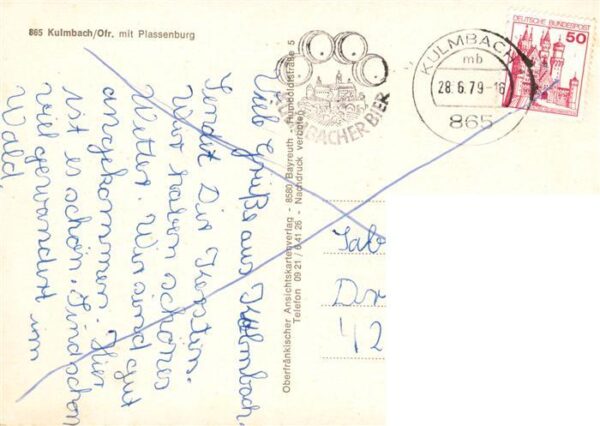 865 Kulmbach/Ofr. mit Plassenburg
Viele Grüße aus Kulmbach,
sendet Dir Kerstin.
Wir haben schönes
Wetter. Wir sind gut
angekommen. Hier
ist es schön. Sind schon
viel gewandert im
Wald.
Oberfränkischer Ansichtskartenverlag - 8580 Bayreuth - Humboldtstraße 5
Telefon 09 21 / 6 41 26 - Nachdruck verboten
BACHER BIER
KULMBACH
mb
28.6.79-16
865
DEUTSCHE BUNDESPOST
50
42